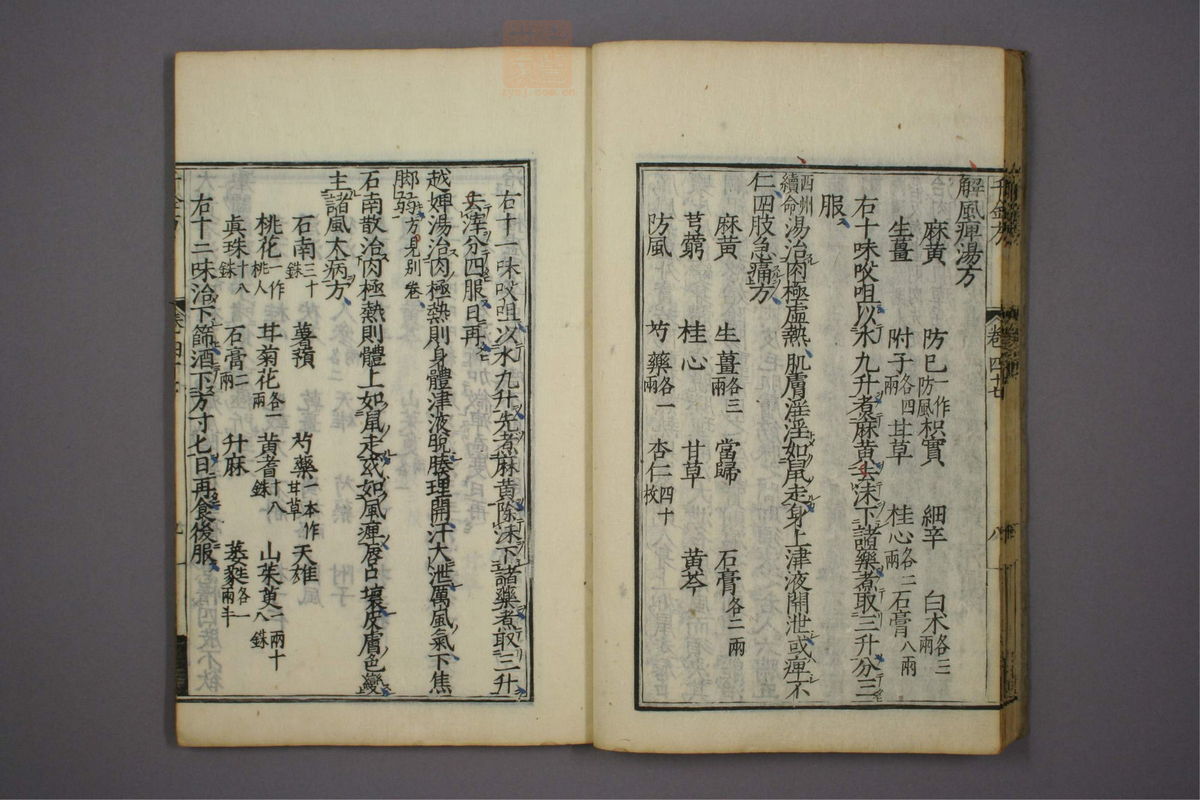 千金方 卷四十七 八
解風痺湯方
麻黃 防巳一作防風 枳實 細辛 白木各三兩
生薑 附子各四兩 甘草 桂心各二兩 石膏八兩
右十味㕮咀以水九升煮麻黃去沫下諸藥煮取三升分三
服
西州續命湯治肉極虛熱肌膚淫淫如鼠走身上津液開泄或痺不
仁四肢急痛方
麻黃 生薑各三兩 當歸 石膏各二兩
芎藭 桂心 甘草 黃芩
防風 芍藥各一兩 杏仁四十枚
右十一味㕮咀以水九升先煮麻黃除沫下諸藥煮取三升
去滓分四服日再
越婢湯治肉極熱則身體津液脫腠理開汗大泄厲風氣下焦
脚弱方見別卷
石南散治肉極熱則體上如鼠走或如風痺唇口壞皮膚色變
主諸風大病方
石南三十銖 薯預 芍藥一本作甘草 天雄
桃花一作桃人 甘菊花各一兩 黃耆十八銖 山茱萸一兩十八銖
真珠十八銖 石膏二兩 升麻 葳蕤各一兩半
右十二味治下篩酒下方寸七日再食後服